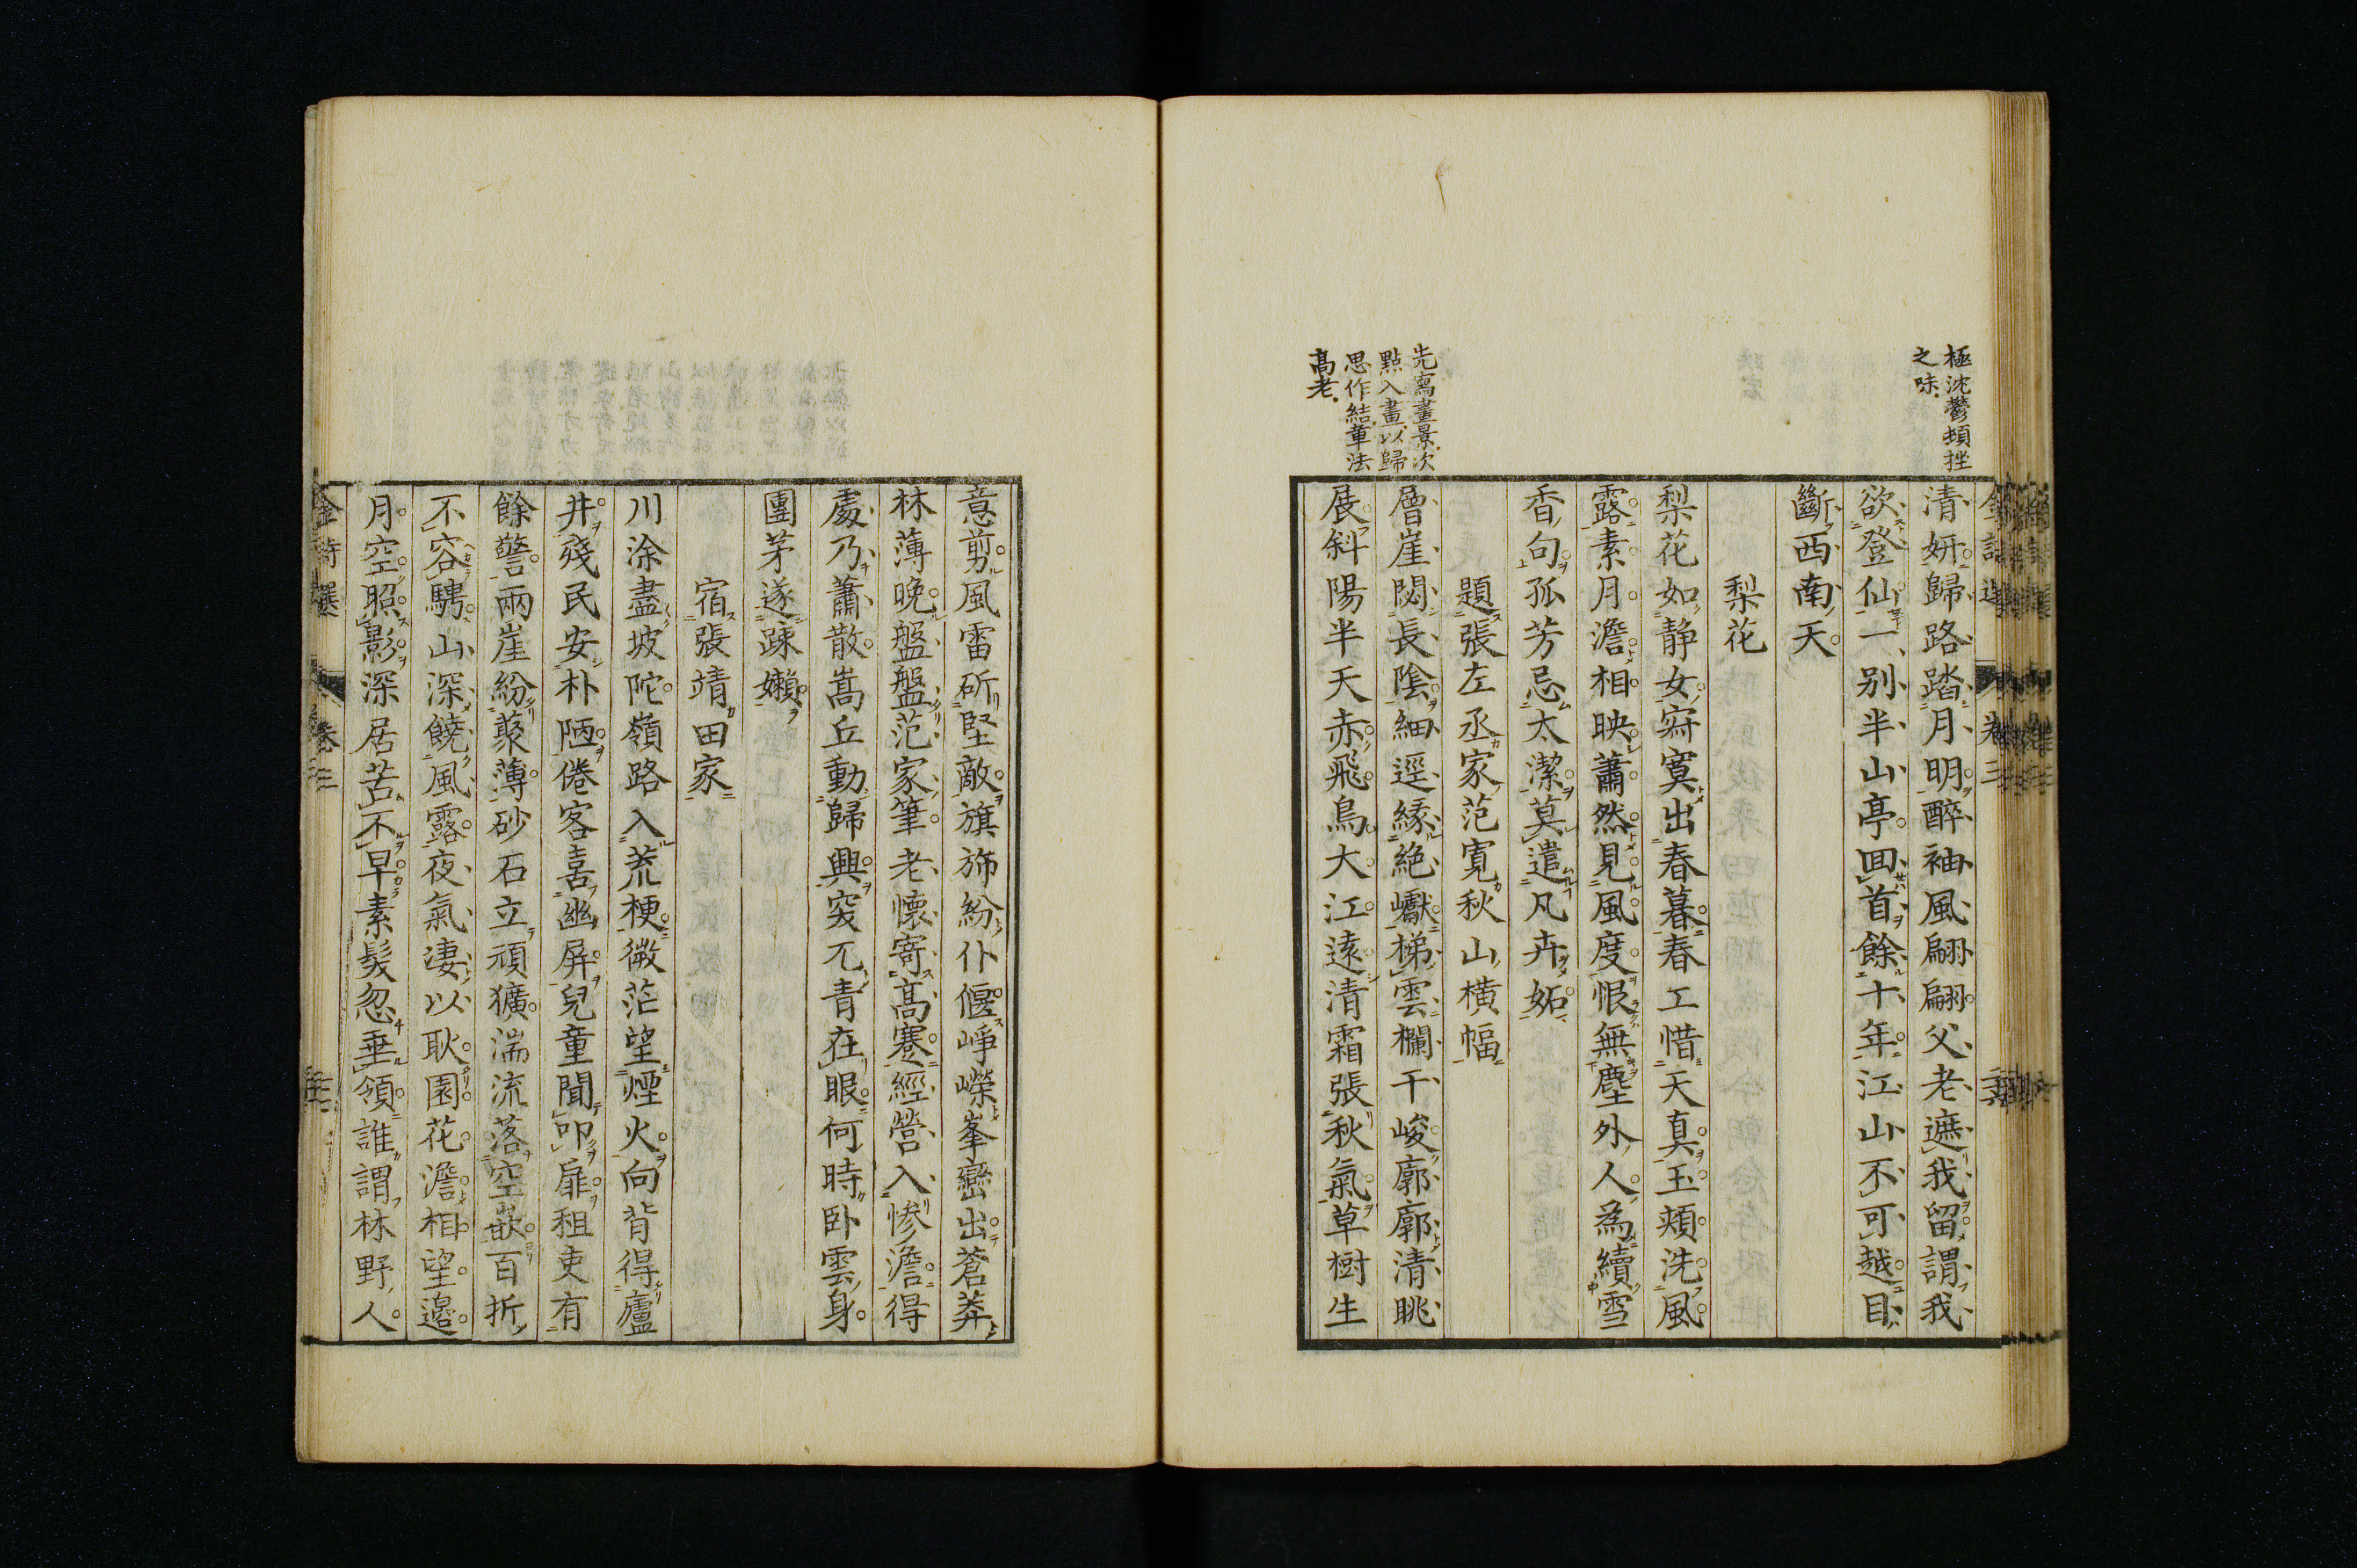 極沈鬱頓挫
之味
清妍歸路踏月明醉袖風翩翩父老遮我留謂我
欲登仙一別半山亭回首餘十年江山不可越目
斷西南天
梨花
梨花如靜女寂寞出春暮春工惜天真玉頰洗風
露素月澹相映蕭然見風度恨無塵外人為續雪
香句孤芳忌太潔莫遣凡卉妬
題張左丞家范寬秋山橫幅
先寫畫景次
點入畫以歸
思作結章法
高老
層崖閟長陰細逕緣絕巘梯雲欄干峻廓廓清眺
展斜陽半天赤飛鳥大江遠清霜張秋氣草樹生
意剪風雷斫堅敵旗旆紛仆偃崢嶸峯巒出蒼莽
林薄晚盤盤范家筆老懷寄高蹇經營入慘澹得
處乃蕭散嵩丘動歸興突兀青在眼何時臥雲身
團茅遂疎嬾
宿張靖田家
川涂盡坡陀嶺路入荒梗微茫望煙火向背得廬
井殘民安朴陋倦客喜幽屏兒童聞叩扉租吏有
餘警兩崖紛叢薄砂石立頑獷湍流落空嵌百折
不容騁山深饒風露夜氣淒以耿園花澹相望邉
月空照影深居苦不早素髮忽垂領誰謂林野人
金詩選
卷三